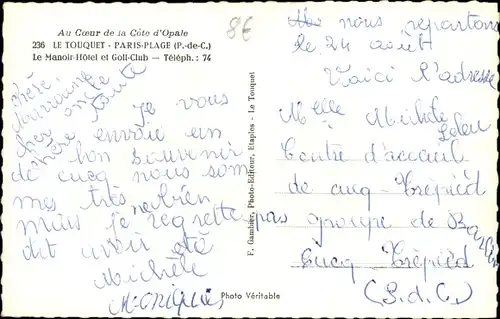 Au Cœur de la Côte d'Opale
236 LE TOUQUET - PARIS-PLAGE (P.-de-C.)
Le Manoir-Hôtel et Golf-Club — Téléph. : 74
8€
chère
Marraine
cher
Je vous
envoie un
bon souvenir
de cucq nous som
mes très bien
mais je regrette pas
dit avoir été
Michèle
Monique
F. Gambier, Photo-Editeur, Etaples - Le Touquet
Photo Véritable
nous repartons
le 24 août
Voici l'adresse
Melle Michèle
Centre d'accueil
de cucq-Trépied
groupe de
Cucq Trépied
(P.d.C.)